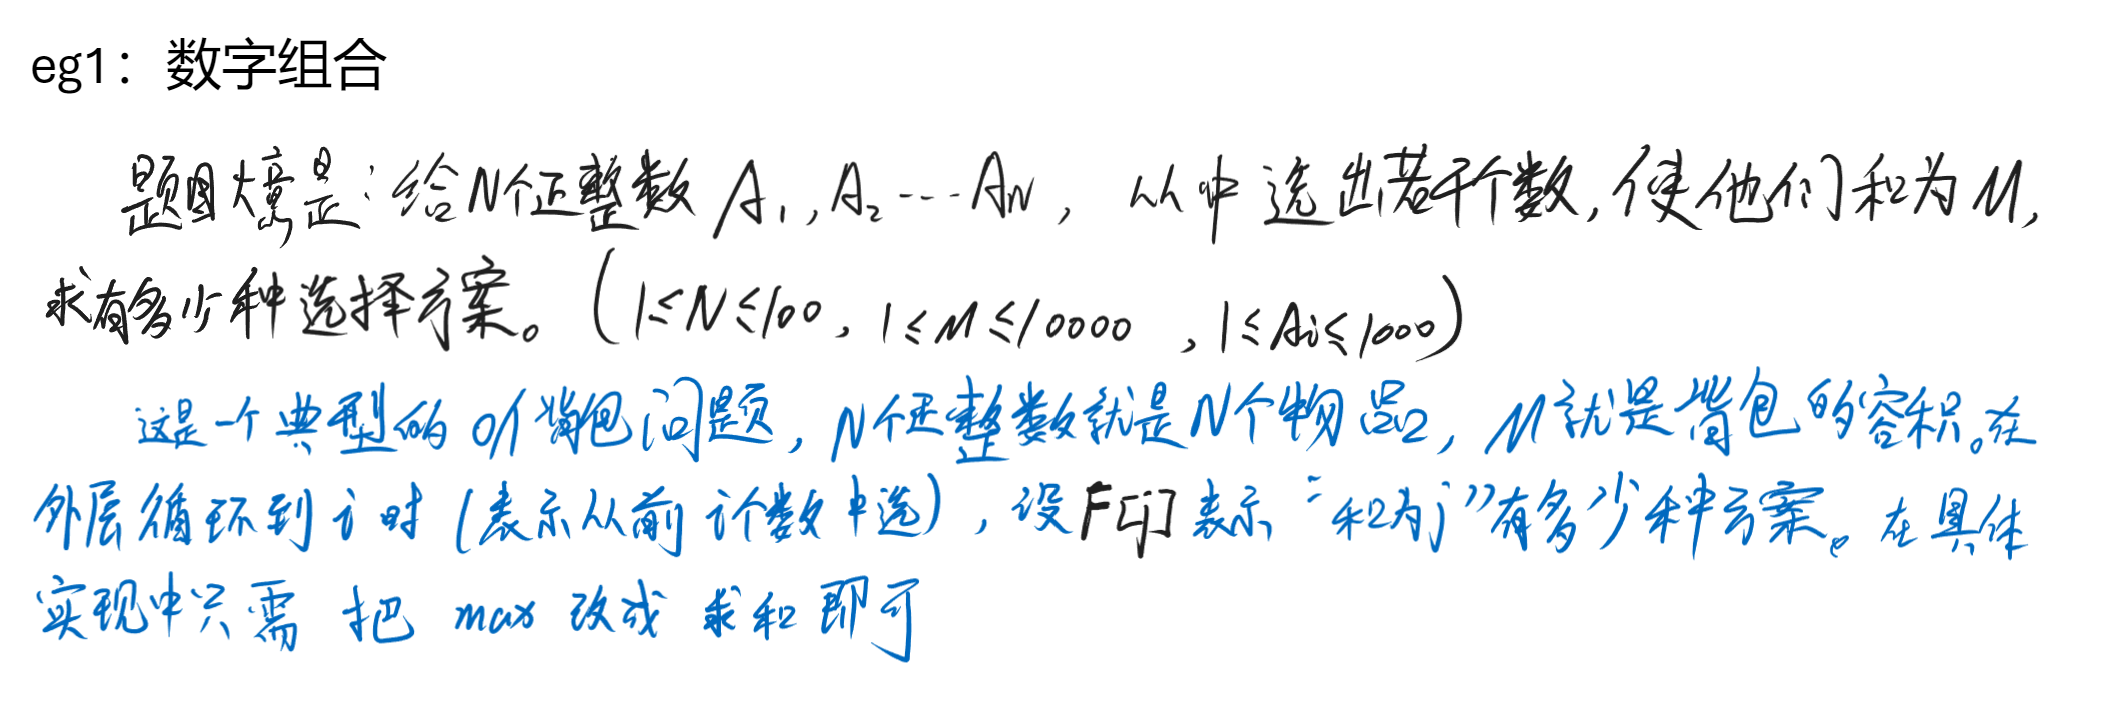 eg1：数字组合
题目大意是：给N个正整数 A₁,A₂---AN，从中选出若干个数,使他们和为M,
求有多少种选择方案。(1≤N≤100,1≤M≤10000,1≤Ai≤1000)
这是一个典型的01背包问题,N个正整数就是N个物品,M就是背包的容积。在
外层循环到i时(表示从前i个数中选),设F[j]表示“和为j”有多少种方案。在具体
实现中只需 把 max 改成 求和即可